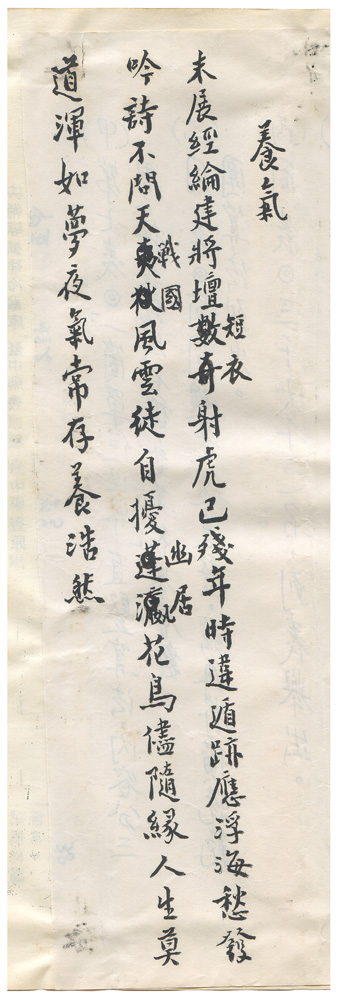 養氣
短衣
未展經綸建將壇數奇射虎已殘年時違遁跡應浮海愁發
戰國
幽居
吟詩不問天夷狄風雲徒自擾蓬瀛花鳥儘隨緣人生莫
道渾如夢夜氣常存養浩然